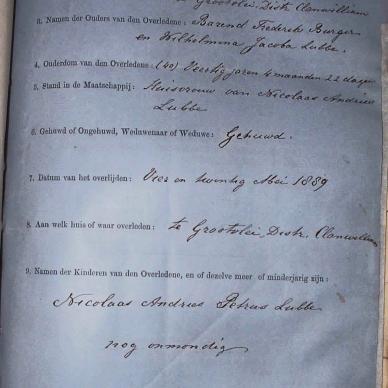 te Grootvlei, Distr. Clanwilliam
3. Namen der Ouders van den Overledene: Barend Frederik Burger
en Wilhelmina Jacoba Lubbe.
4. Ouderdom van den Overledene: (40) Veertig jaren 4 maanden 22 dagen
5. Stand in de Maatschappij: Huisvrouw van Nicolaas Andries
Lubbe
6. Gehuwd of Ongehuwd, Weduwenaar of Weduwe: Gehuwd.
7. Datum van het overlijden: Vier en twintig Mei 1889
8. Aan welk huis of waar overleden: te Grootvlei, Distr. Clanwilliam
9. Namen der Kinderen van den Overledene, en of dezelve meer of minderjarig zijn:
Nicolaas Andries Petrus Lubbe
nog onmondig